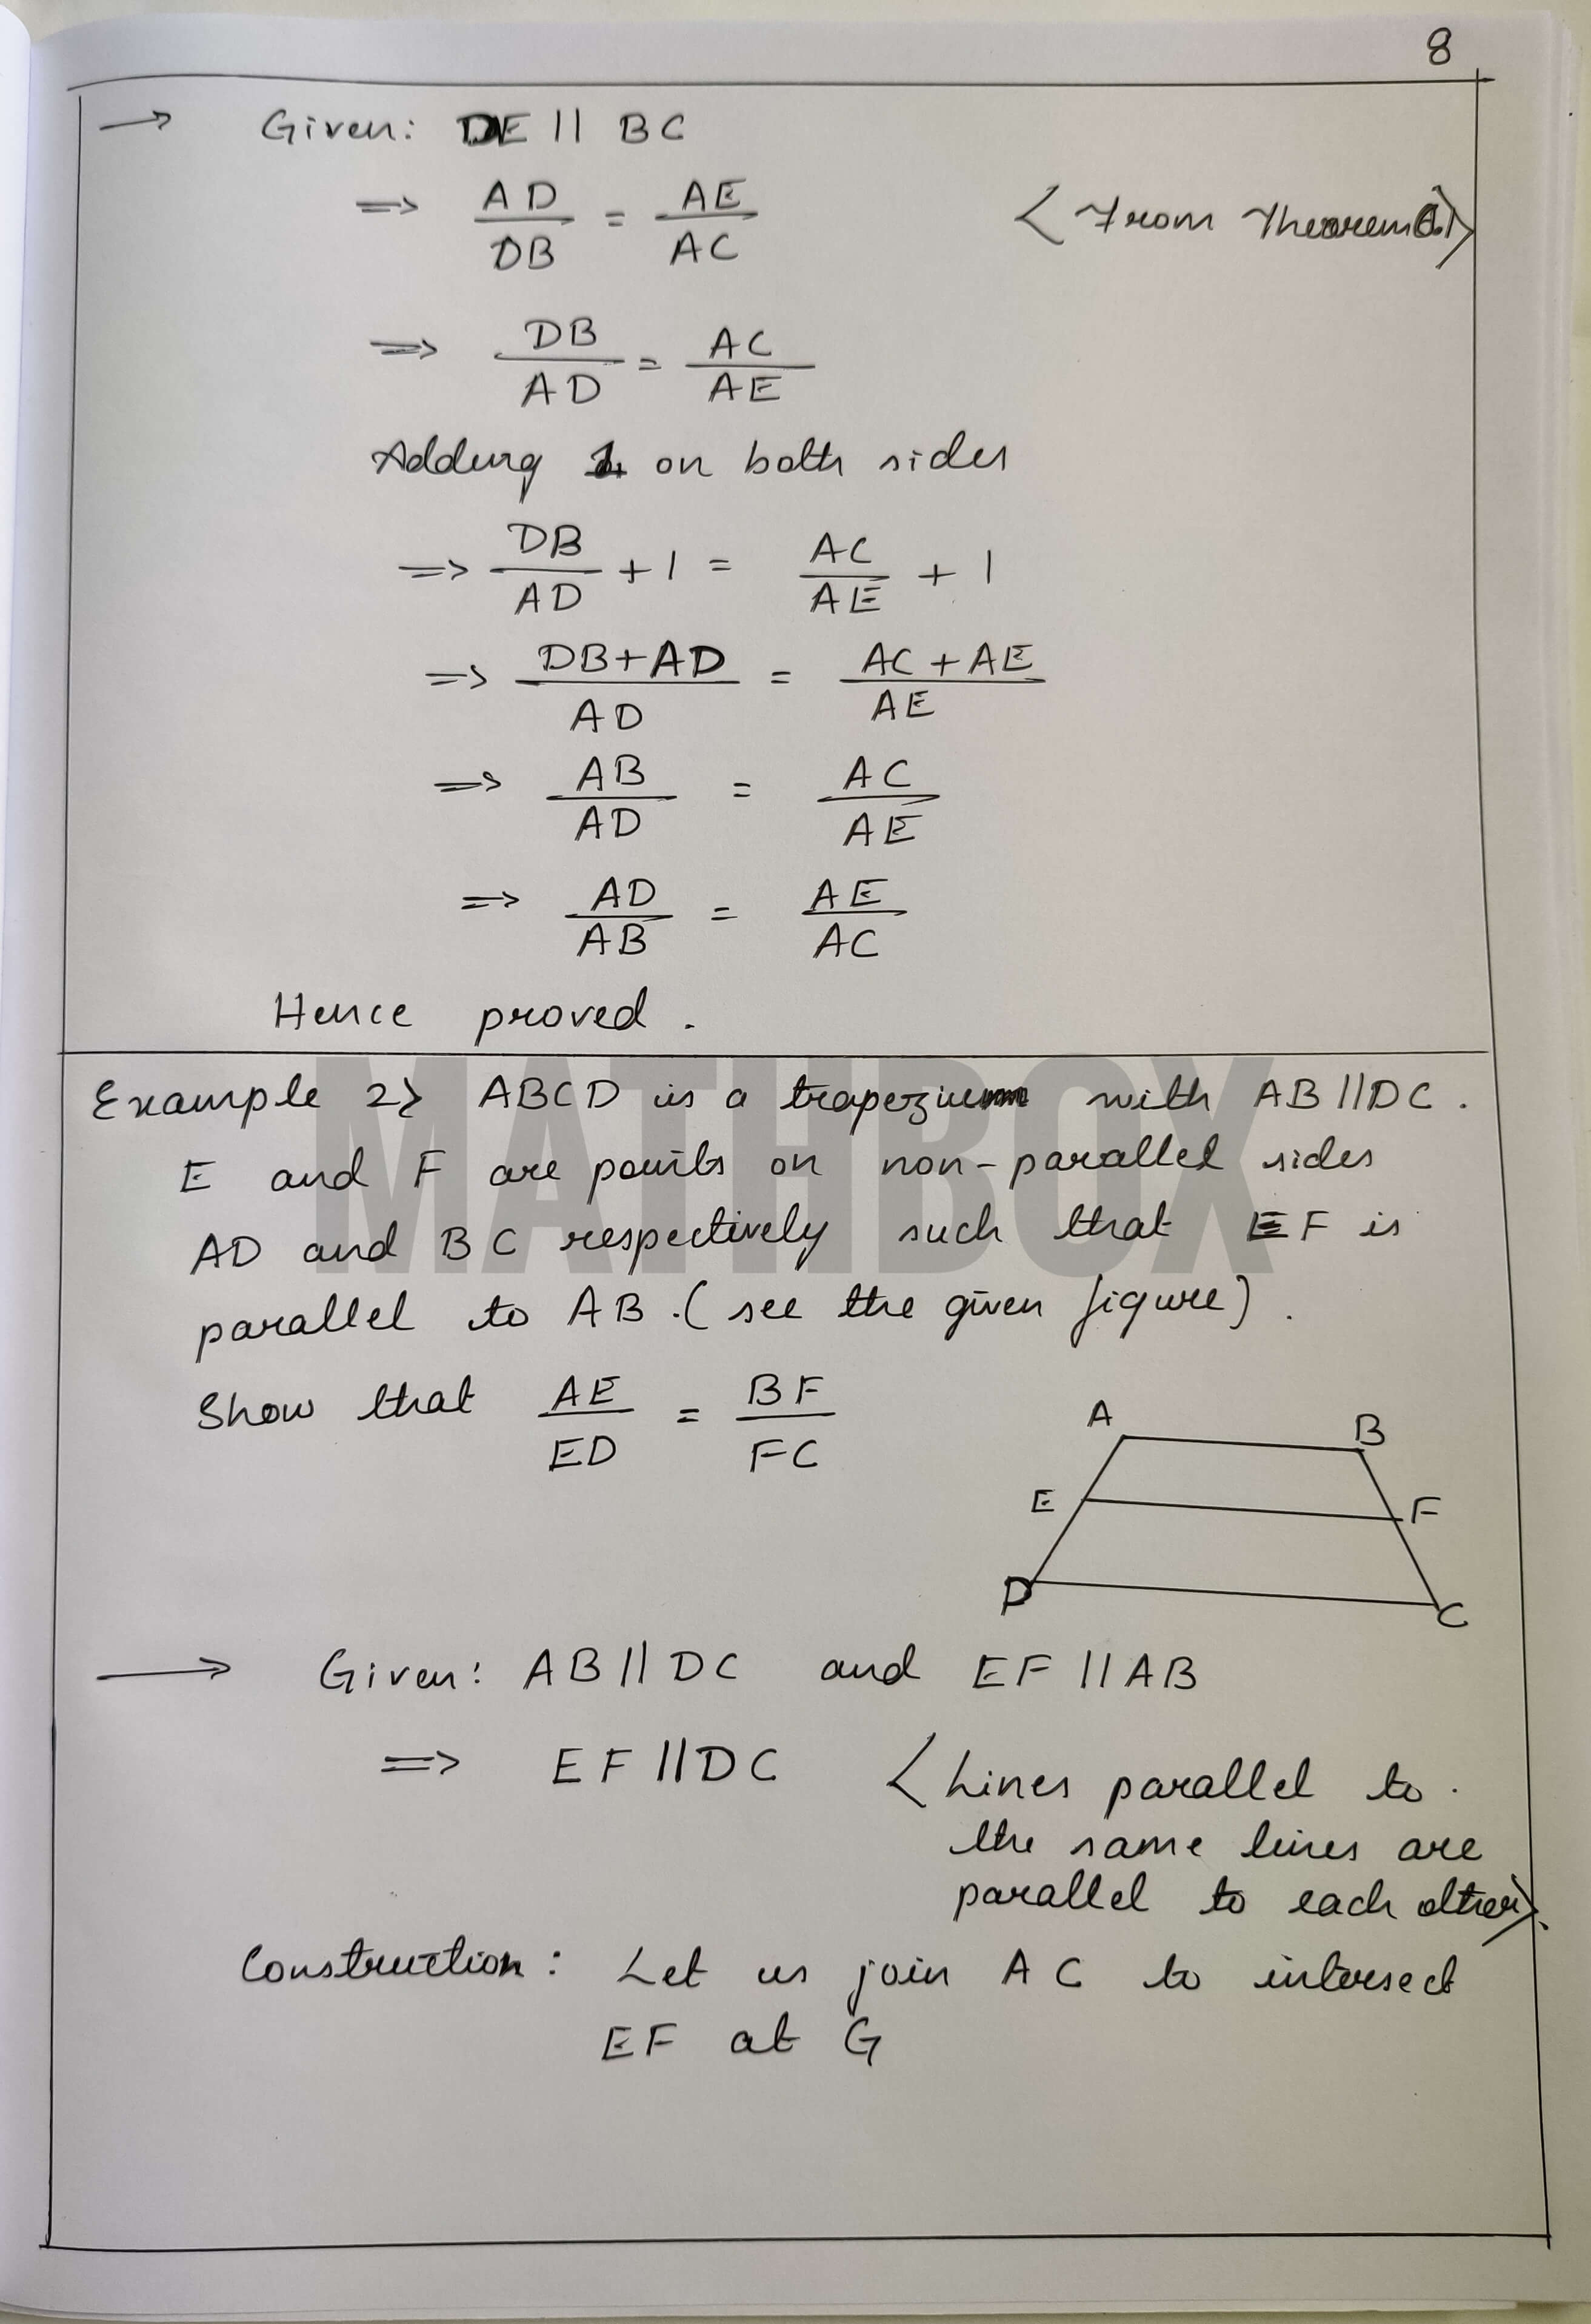 8
→ Given: DE || BC
⇒ AD/DB = AE/AC <From Theorem 6.1>
⇒ DB/AD = AC/AE
Adding 1 on both sides
⇒ DB/AD + 1 = AC/AE + 1
⇒ DB+AD/AD = AC+AE/AE
⇒ AB/AD = AC/AE
⇒ AD/AB = AE/AC
Hence proved.
MATHBOX
Example 2> ABCD is a trapezium with AB||DC.
E and F are points on non-parallel sides
AD and BC respectively such that EF is
parallel to AB.(see the given figure).
Show that AE/ED = BF/FC
A B
E F
D C
→ Given: AB||DC and EF||AB
⇒ EF||DC <Lines parallel to
the same lines are
parallel to each other>.
Construction: Let us join AC to intersect
EF at G